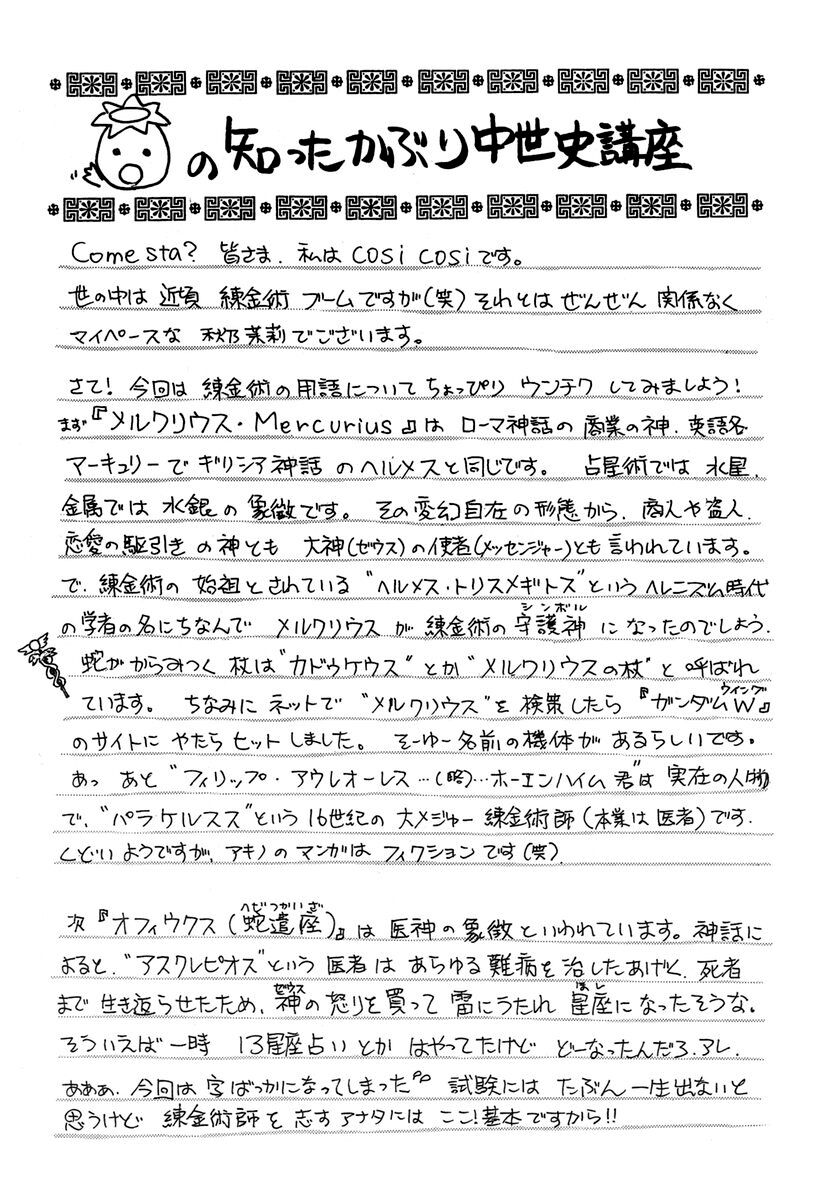 の知ったかぶり中世史講座
Come sta? 皆さま、私は cosi cosiです。
世の中は 近頃 練金術 ブームですが(笑) それとは ぜんぜん 関係なく
マイペースな 秋乃茉莉でございます。
さて! 今回は 練金術の用語について ちょっぴり ウンチク してみましょう!
まず『メルクリウス・Mercurius』は ローマ神話の 商業の神、英語名
マーキュリーで ギリシア神話 のヘルメスと同じです。 占星術では 水星、
金属では 水銀の 象徴です。 その変幻自在の形態から、商人や盗人、
恋愛の駆引き の神とも 大神(ゼウス)の使者(メッセンジャー)とも言われています。
で、練金術の 始祖とされている “ヘルメス・トリスメギトス”という ヘレニズム時代
シンボル
の学者の名にちなんで メルクリウス が 練金術の守護神 になったのでしょう。
蛇が からみつく 杖は“カドゥケウス” とか“メルクリウスの杖” と 呼ばれ
ウイング
ています。 ちなみに ネットで “メルクリウス”を 検索したら 『ガンダムW』
のサイトに やたら ヒット しました。 そーゆー名前の機体が あるらしいです。
あっ あと “フィリップ・アウレオーレス…(略)…ホーエンハイム君”は 実在の人物
で、“パラケルスス”という 16世紀の 大メジャー 練金術師(本業は医者)です。
くどいようですが、アキノのマンガは フィクションです(笑)
へびつかいざ
次『オフィウクス(蛇遣座)』は 医神の象徴といわれています。神話に
よると、“アスクレピオス”という 医者は あらゆる難病を治したあげく、死者
ゼウス ほし
まで 生き返らせたため、神の怒りを買って 雷にうたれ 星座になったそうな。
そういえば 一時 13星座占い とか はやってたけど どーなったんだろ、アレ。
あああ、今回は 字ばっかになってしまった 試験には たぶん 一生出ないと
思うけど 練金術師を 志すアナタには ここ!基本ですから!!